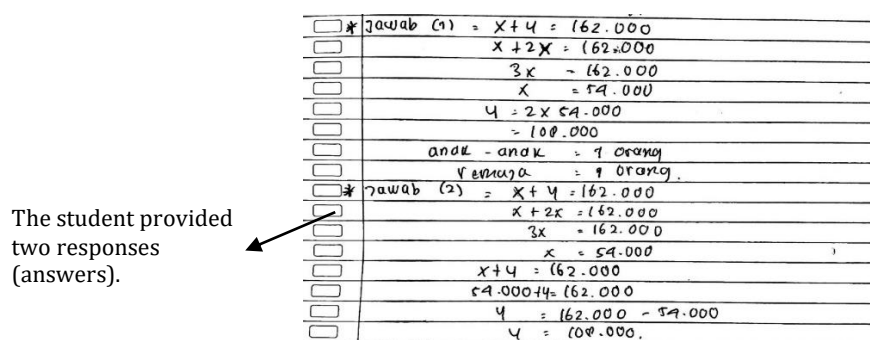 The student provided
two responses
(answers).
* Jawab (1) = x + y = 162.000
x + 2x = 162.000
3x = 162.000
x = 54.000
y = 2 x 54.000
= 108.000
anak - anak = 9 orang
remaja = 9 orang.
* Jawab (2) = x + y = 162.000
x + 2x = 162.000
3x = 162.000
x = 54.000
x + y = 162.000
54.000 + y = 162.000
y = 162.000 - 54.000
y = 108.000.